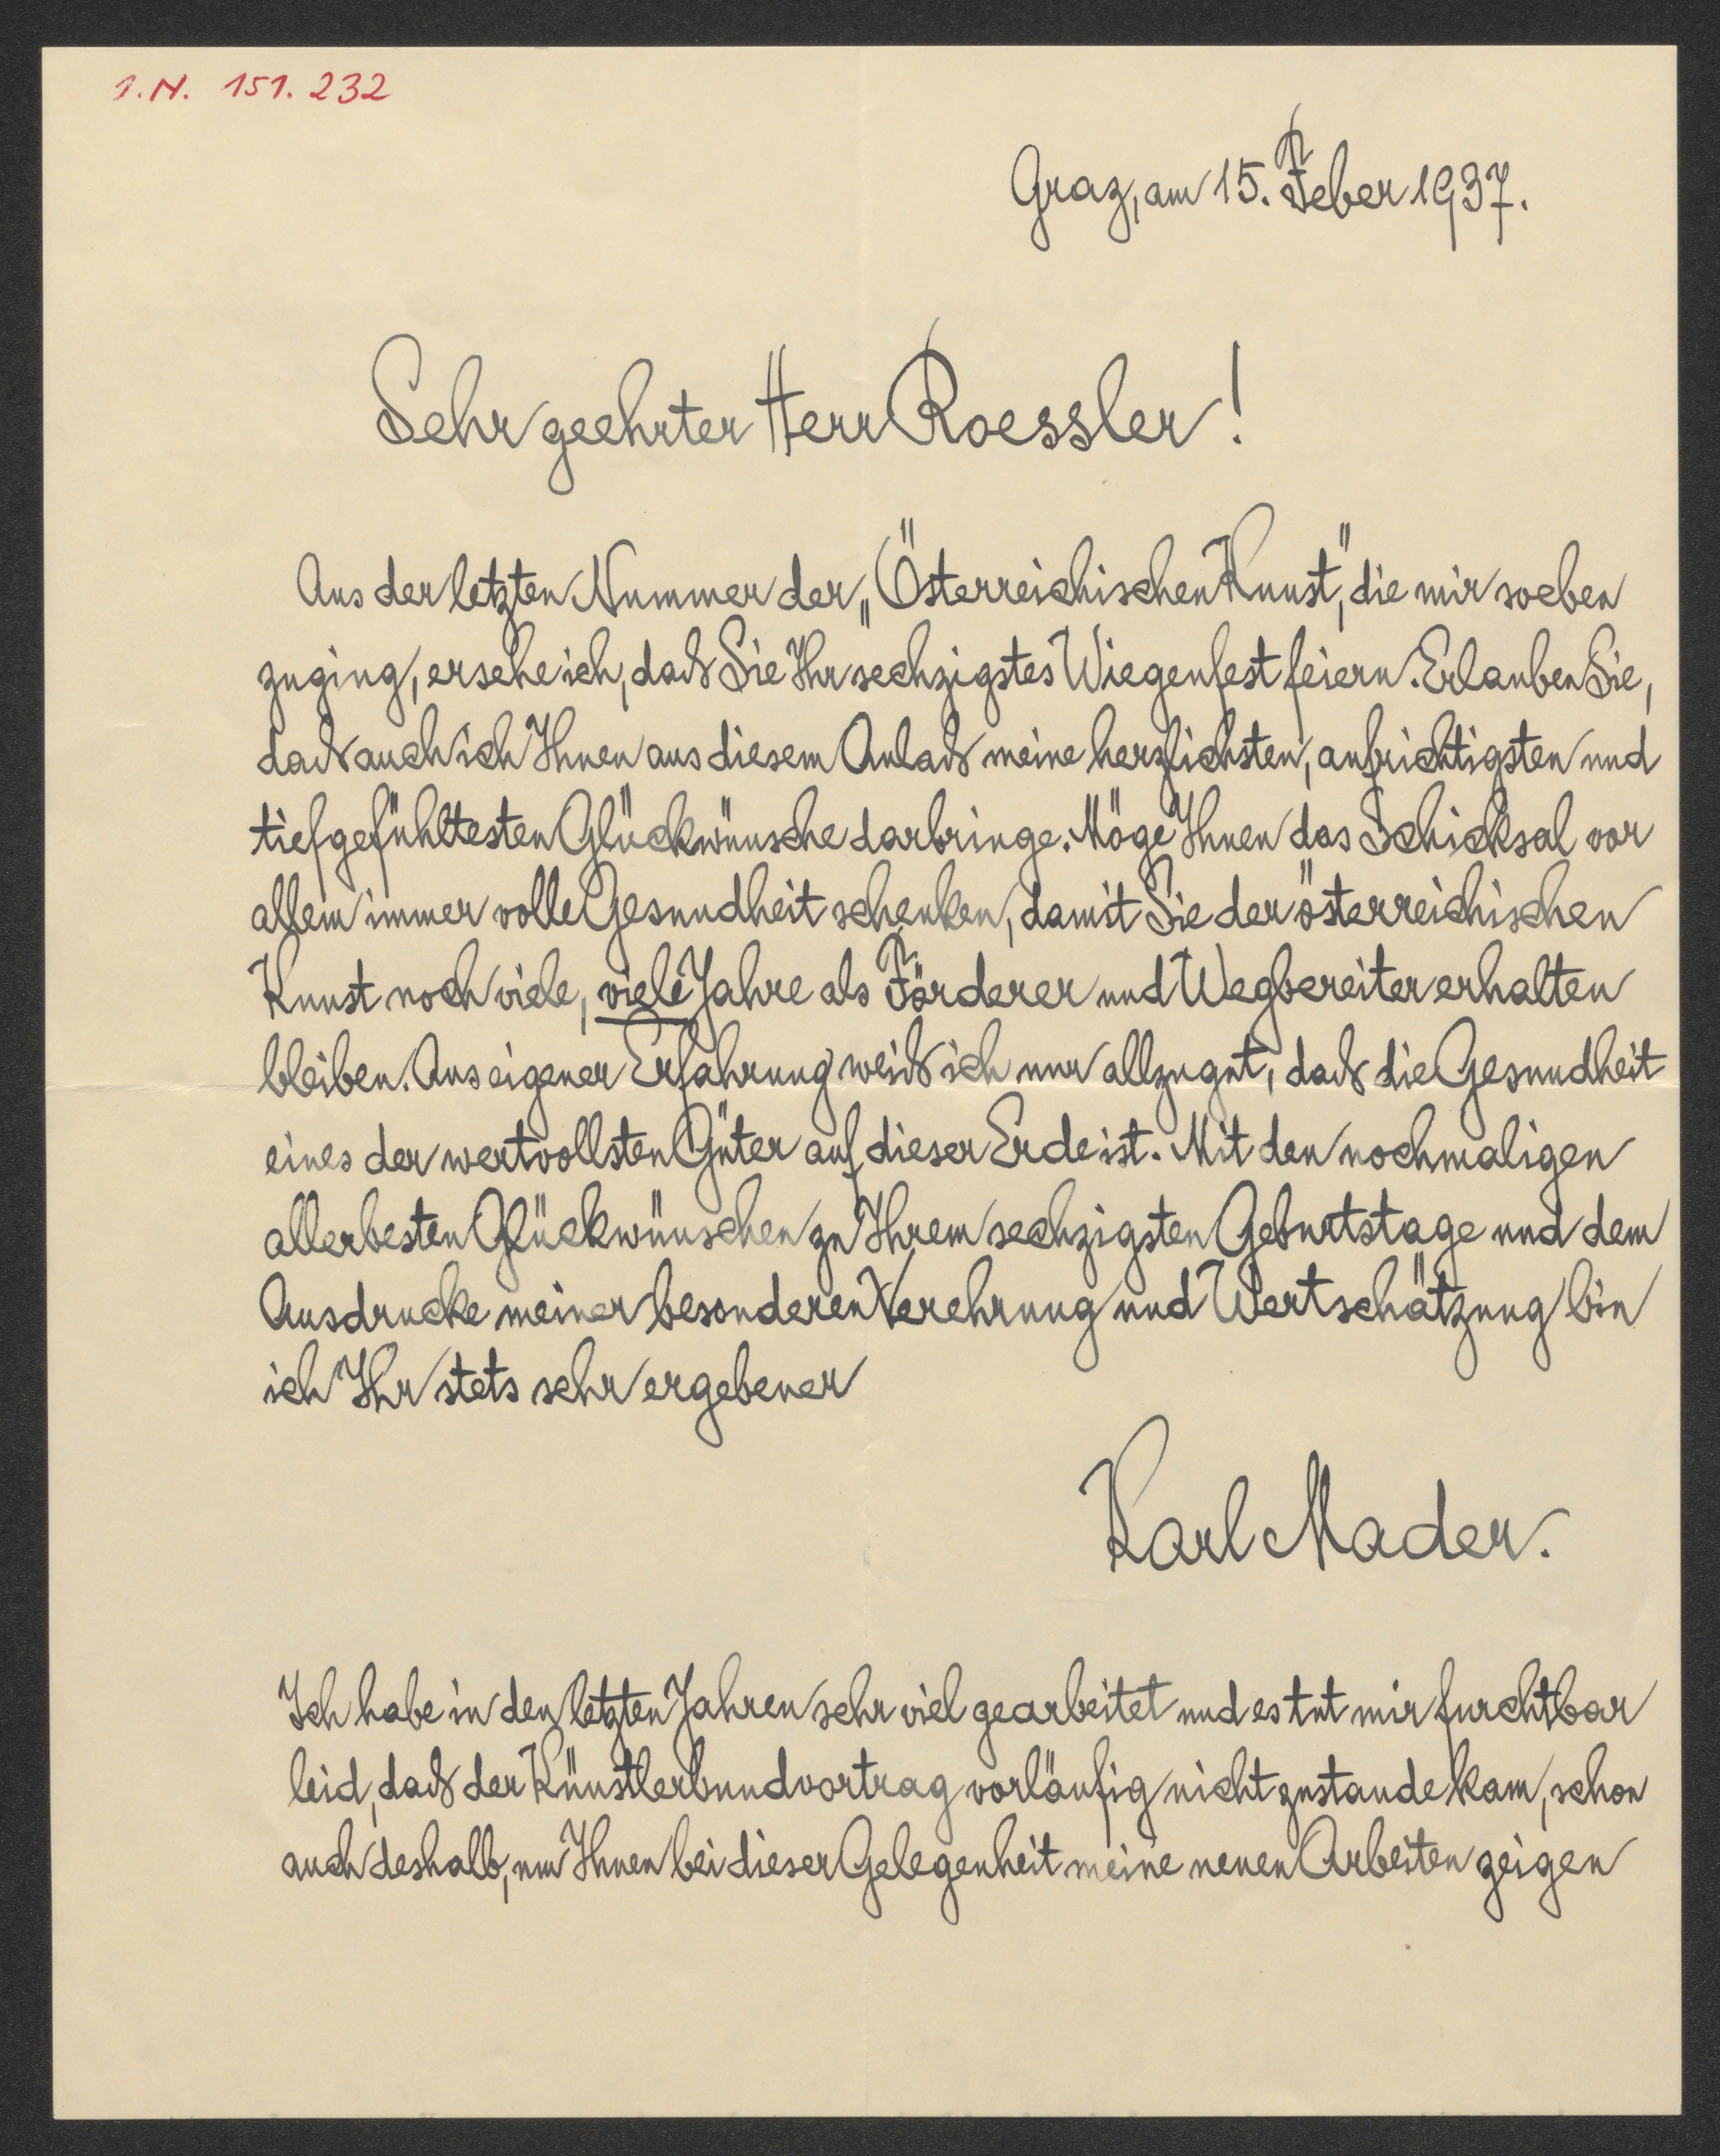 I.N. 151.232
Graz, am 15. Feber 1937.
Sehr geehrter Herr Roessler!
Aus der letzten Nummer der „Österreichischen Kunst", die mir soeben
zuging, ersehe ich, daß Sie Ihr sechzigstes Wiegenfest feiern. Erlauben Sie,
daß auch ich Ihnen aus diesem Anlaß meine herzlichsten, aufrichtigsten und
tiefgefühltesten Glückwünsche darbringe. Möge Ihnen das Schicksal vor
allem immer volle Gesundheit schenken, damit Sie der österreichischen
Kunst noch viele, viele Jahre als Förderer und Wegbereiter erhalten
bleiben. Aus eigener Erfahrung weiß ich nur allzugut, daß die Gesundheit
eines der wertvollsten Güter auf dieser Erde ist. Mit den nochmaligen
allerbesten Glückwünschen zu Ihrem sechzigsten Geburtstage und dem
Ausdrucke meiner besonderen Verehrung und Wertschätzung bin
ich Ihr stets sehr ergebener
Karl Mader.
Ich habe in den letzten Jahren sehr viel gearbeitet und es tut mir furchtbar
leid, daß der Künstlerbundvortrag vorläufig nicht zustande kam, schon
auch deshalb, um Ihnen bei dieser Gelegenheit meine neuen Arbeiten zeigen